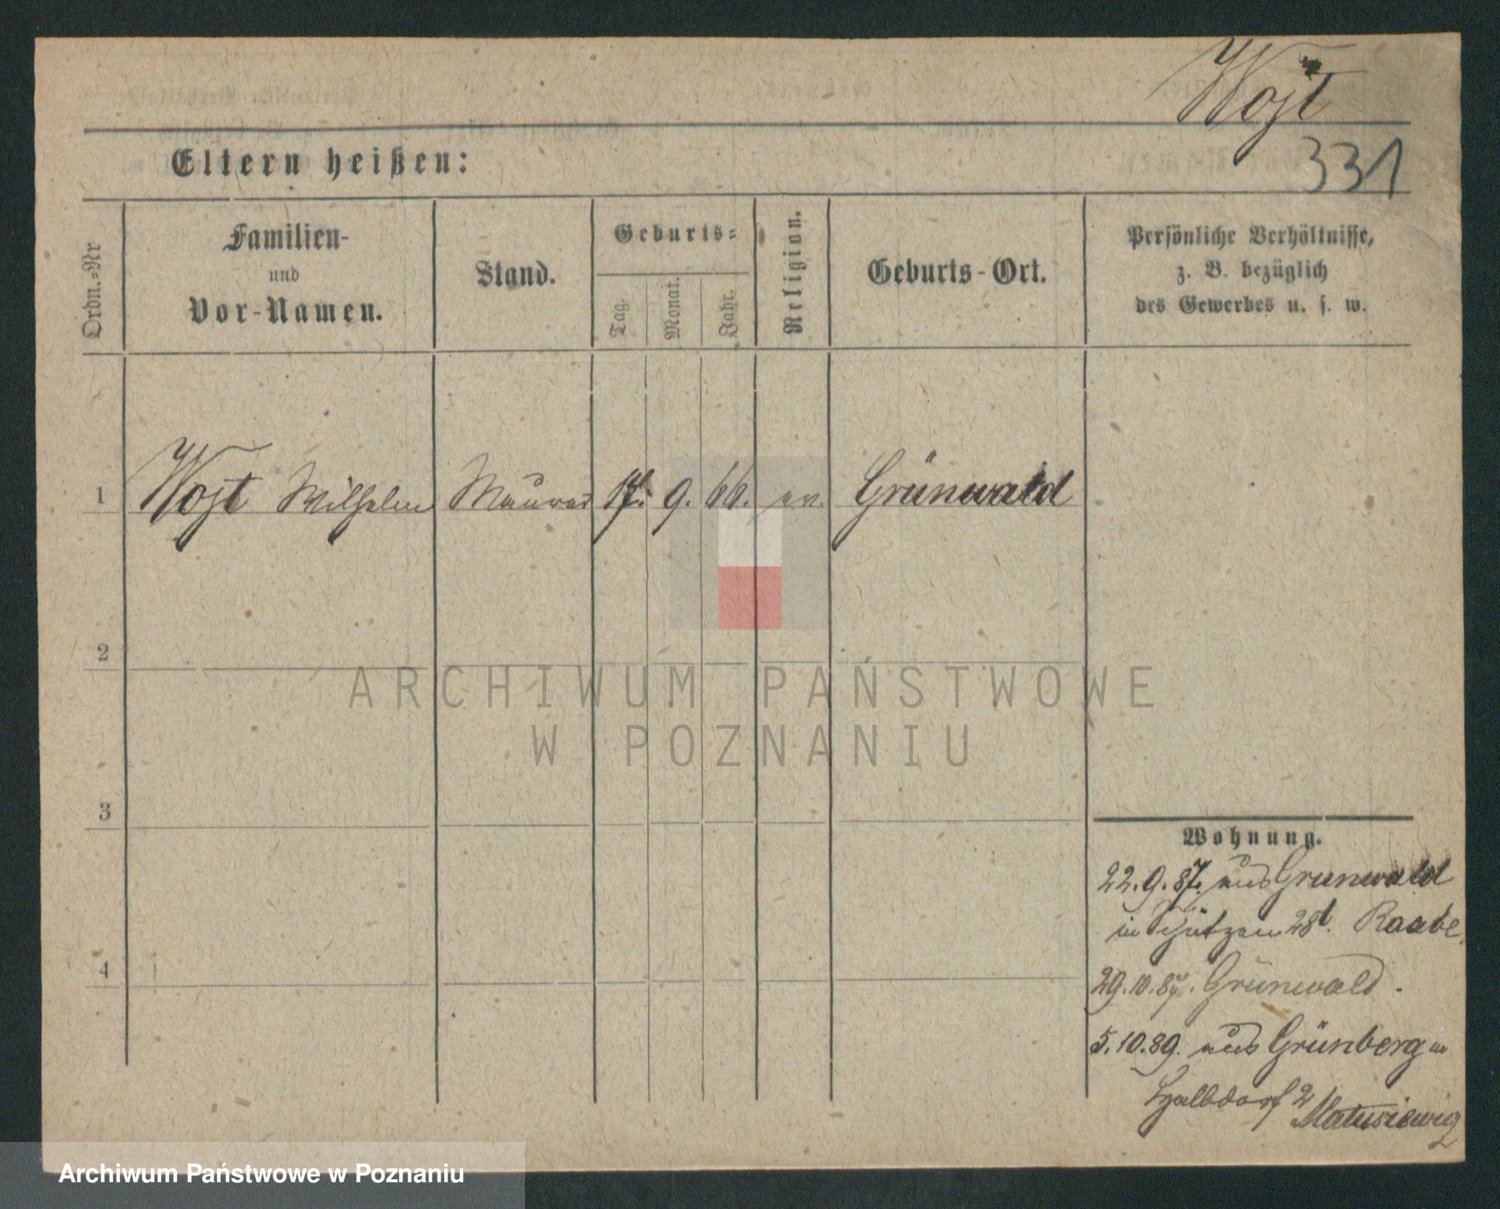 Vogt
331
Eltern heißen:
Ordn.-Nr
Familien-
und
Vor-Namen.
Stand.
Geburts-
Tag.
Monat.
Jahr.
Religion.
Geburts-Ort.
Persönliche Verhältnisse,
z. B. bezüglich
des Gewerbes u. s. w.
1 Vogt Wilhelm Maurer 17. 9. 66. ev. Grünwald
2
3
4
Wohnung.
22.9.87. aus Grunwald
in Schützen 28 Raabe.
29.10.87. Grünwald.
5.10.89. aus Grünberg in
Halbdorf 2 Matusiewig
ARCHIWUM PAŃSTWOWE
W POZNANIU
Archiwum Państwowe w Poznaniu